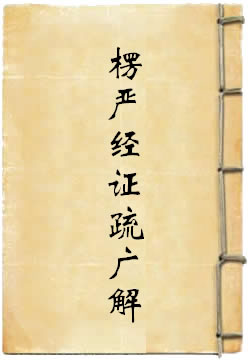 楞严经证疏广解